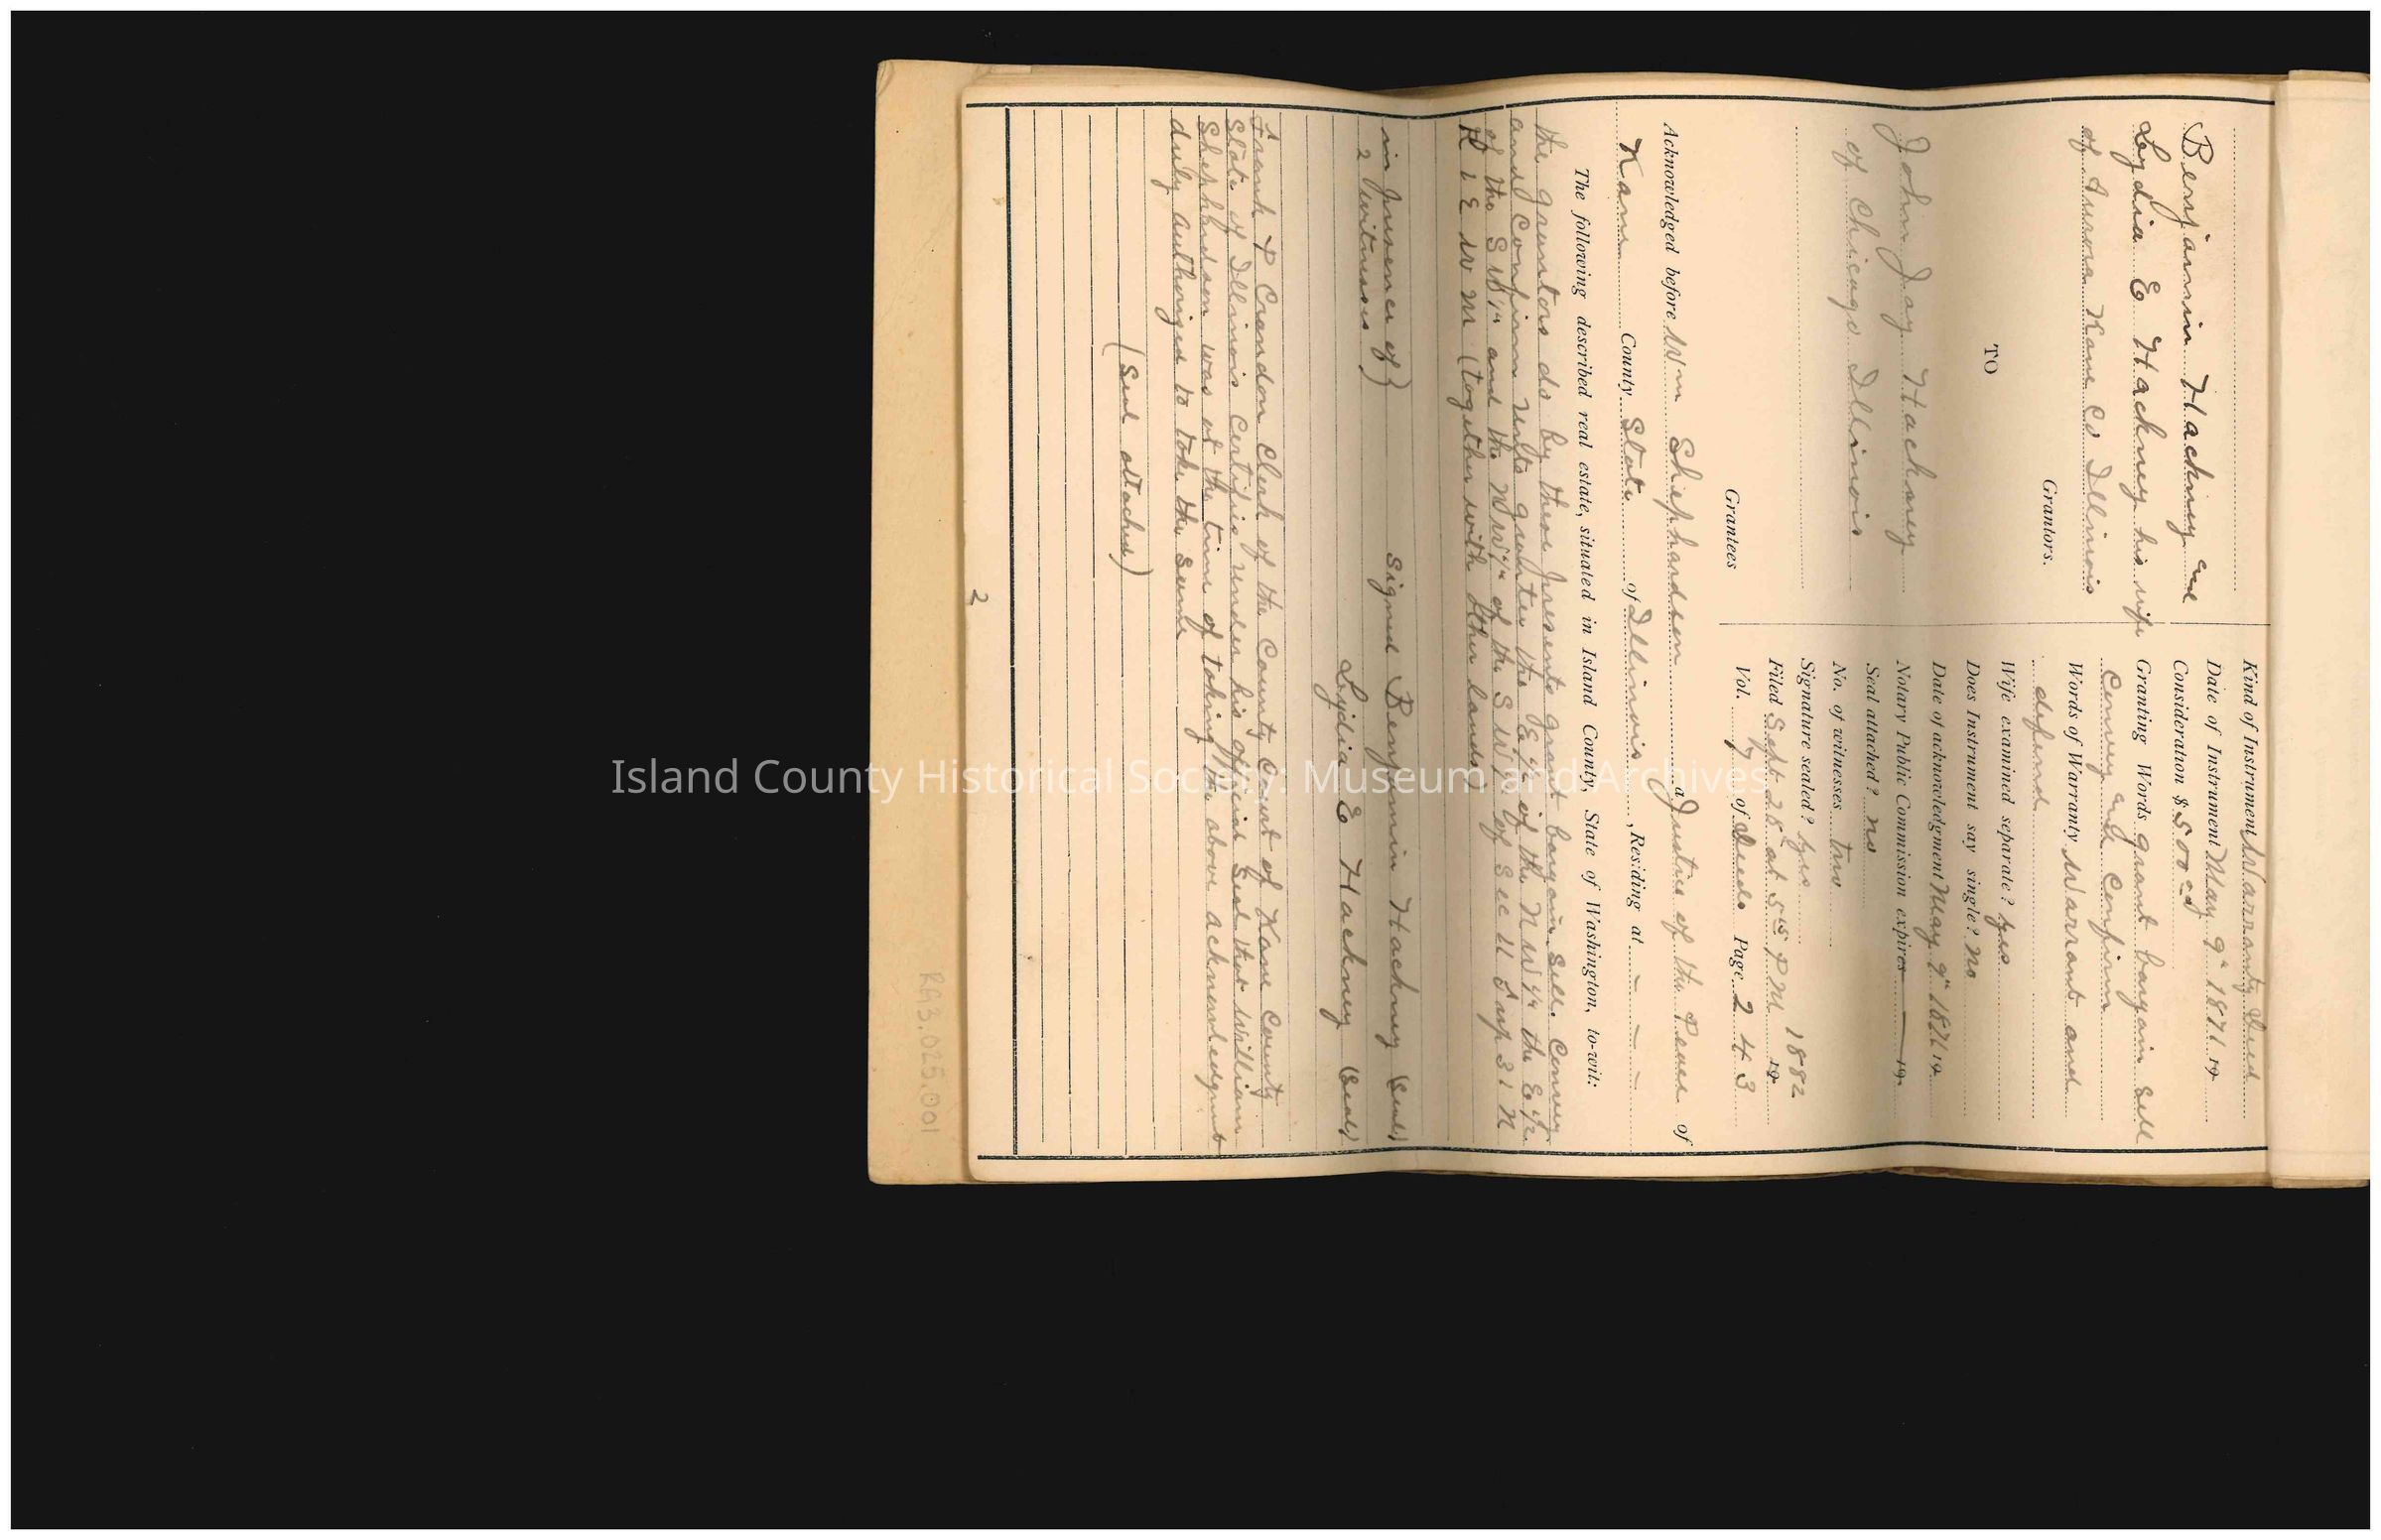 Benjamin Hackney and
Lydia E Hackney his wife
of Aurora Kane Co Illinois
Grantors.
TO
John Jay Hackney
of Chicago Illinois
Grantees
Kind of Instrument Warranty Deed
Date of Instrument May 9th 1871 19
Consideration $ 500.00
Granting Words grant bargain sell
convey and confirm
Words of Warranty Warrant and
defend
Wife examined separate? yes
Does Instrument say single? no
Date of acknowledgment May 9" 1871 19
Notary Public Commission expires — 19
Seal attached? no
No. of witnesses two
Signature sealed? yes
Filed Sept 28 at 5 05 PM 1882 19
Vol. 7 of Deeds Page 243
Acknowledged before Wm Shephardson a Justice of the Peace of
Kane County State of Illinois, Residing at – – –
The following described real estate, situated in Island County, State of Washington, to-wit:
the grantors do by these presents grant bargain sell. convey
and confirm unto grantee the E½ of the NW¼ the E½
of the SW¼ and the NW¼ of the SW¼ of Sec 11 Twp 31 N
R 1 E W M (together with other lands)
in presence of) Signed Benjamin Hackney (Seal)
2 Witnesses) Lydia E Hackney (Seal)
Frank P Crandon Clerk of the County Court of Kane County
State of Illinois Certifies under his official Seal that William
Shephardson was at the time of taking the above acknowledgment
duly authorized to take the same
(Seal attached)
2
RA3.025.001
Island County Historical Society: Museum and Archives